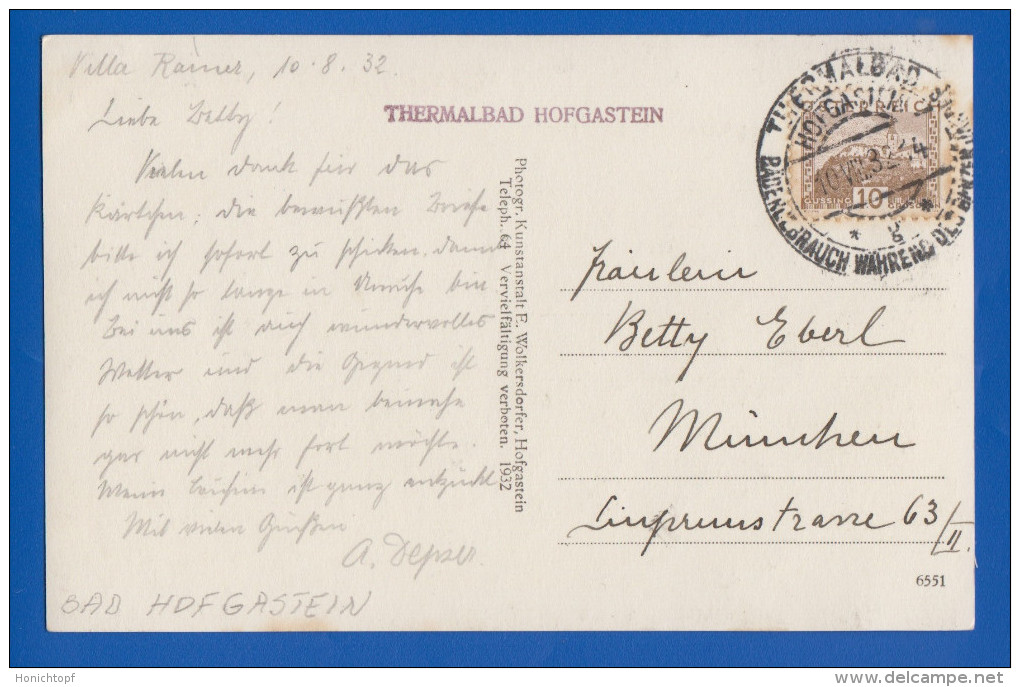 Villa Rainer, 10.8.32.
Liebe Betty!
Vielen Dank für das
Kärtchen. die bewußten Briefe
bitte ich sofort zu schicken, damit
ich nicht so lange in Unruhe bin
Bei uns ist auch wundervolles
Wetter und die Gegend ist
so schön, daß man beinahe
gar nicht mehr fort möchte.
Meine ist ganz entzückt
Mit vielen Grüßen
A. Depser
BAD HOFGASTEIN
THERMALBAD HOFGASTEIN
Photogr. Kunstanstalt E. Wolkersdorfer, Hofgastein
Teleph. 64 Vervielfältigung verboten. 1932
THERMALBAD
HOFGASTEIN
BADENGEBRAUCH WÄHREND DES
10.VIII.32
* g *
ÖSTERREICH
GÜSSING 10
Fräulein
Betty Eberl
München
Linprunstrasse 63/II.
6551
Honichtopf
delcampe.net